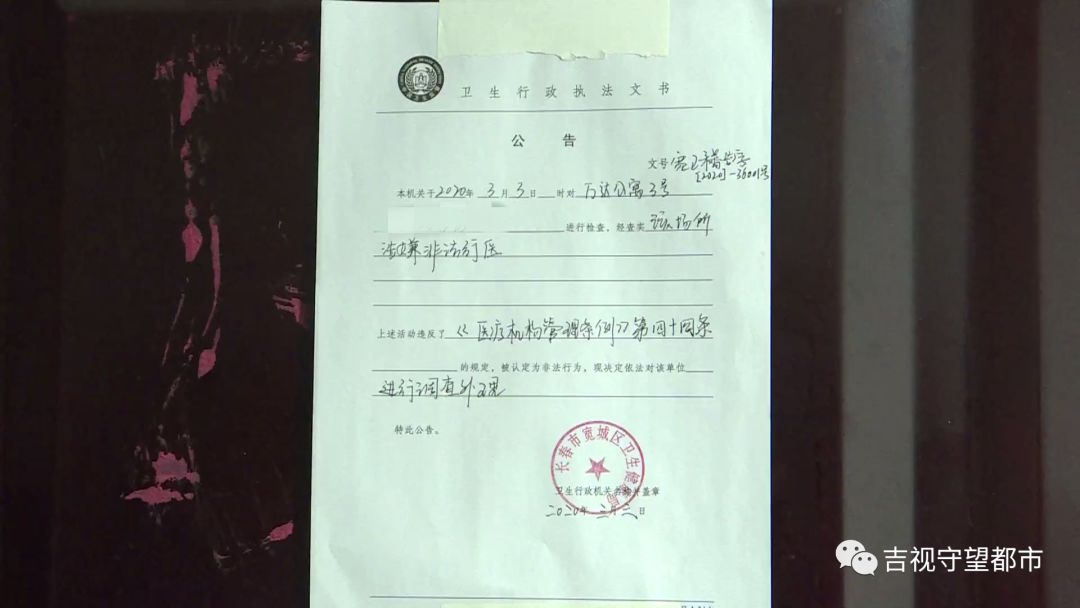 卫生行政执法文书
公 告
文号 宽卫 告字
[2020]-36001号
本机关于2020年3月3日 时对 万达公寓3号
进行检查，经查实 该场所
涉嫌非法行医
上述活动违反了《医疗机构管理条例》第四十四条
的规定，被认定为非法行为，现决定依法对该单位
进行调查处理
特此公告。
长春市宽城区卫生健康局
卫生行政机关名称并盖章
二〇二〇年三月 日
吉视守望都市